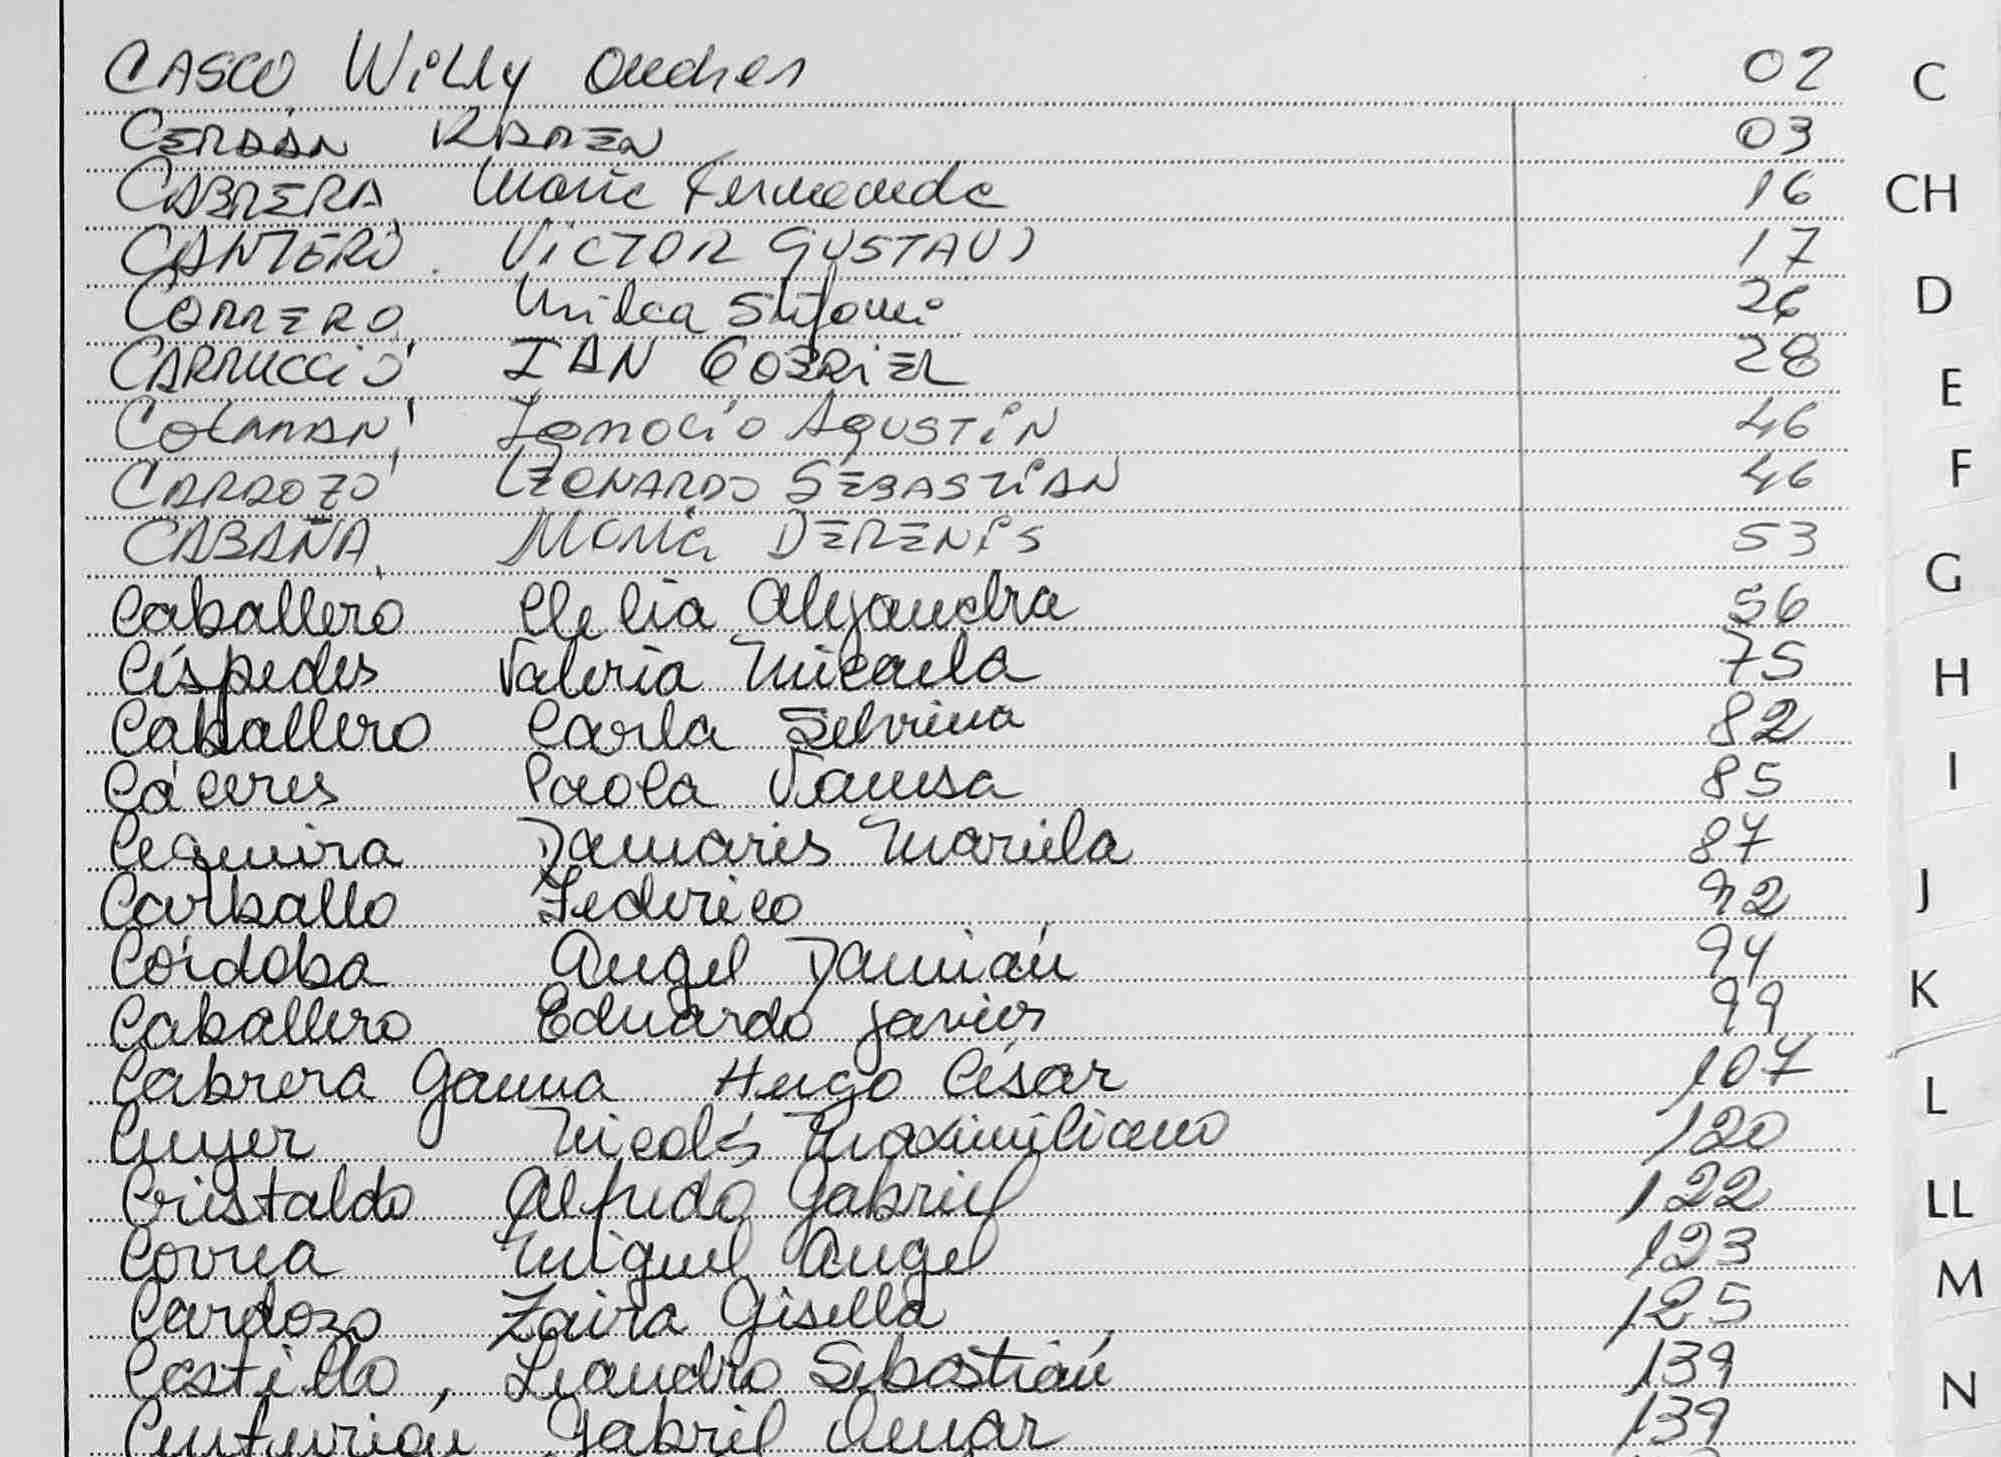 CASCO Willy Andres 02 C
CERDÁN RAMEN 03
CABRERA, Maria Fernanda 16 CH
CANTERO. VICTOR GUSTAVO 17
CORRERO, Milca Stefani 26 D
CARRUCCIO IAN GABRIEL 28
COLMAN, Ignacio AGUSTIN 46 E
CARDOZO LEONARDO SEBASTIAN 46 F
CABAÑA, Maria DERENIS 53
Caballero Clelia Alejandra 56 G
Céspedes Valeria Micaela 75 H
Caballero Carla Sebrina 82
Cáceres Paola Vanesa 85 I
Cequeira Damaris Mariela 87
Carballo Federico 92 J
Córdoba Angel Damián 94
Caballero Eduardo Javier 99 K
Cabrera Gauna Hugo César 107
Cuyer Nicolás Maximiliano 120 L
Cristaldo Alfredo Gabriel 122 LL
Correa Miguel Angel 123
Cardozo Zaira Gisella 125 M
Castillo, Leandro Sebastián 139 N
Centurión Gabriel Omar 139